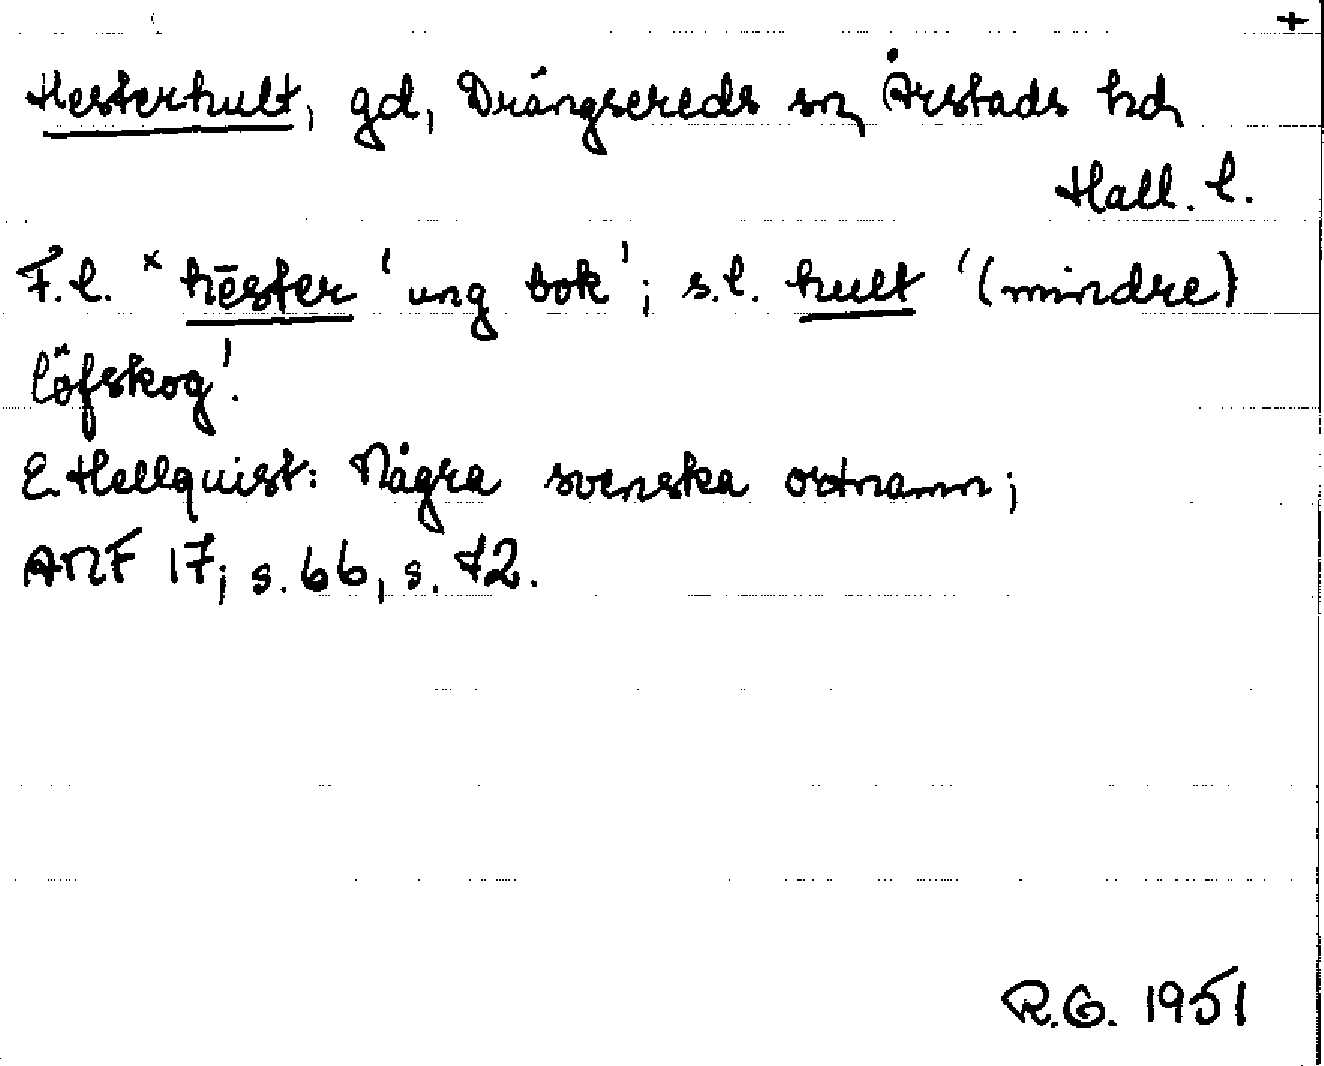 +
Hesterhult, gd, Drängsereds sn, Årstads hd
Hall. l.
F.l. *hēster 'ung bok'; s.l. hult '(mindre)
löfskog'.
E. Hellquist: Några svenska ortnamn;
ANF 17; s. 66, s. 72.
R.G. 1951